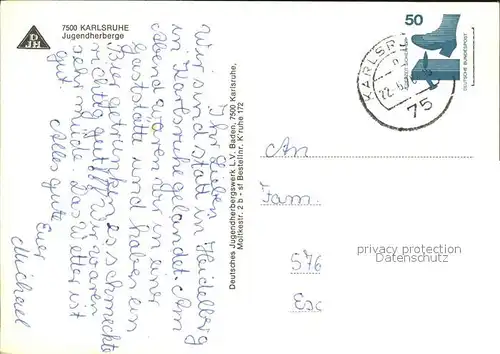 7500 KARLSRUHE
Jugendherberge
DJH
Ihr Lieben,
Wir sind statt in Heidelberg
in Karlsruhe gelandet. Am
Abend waren wir in einer
Gaststätte und haben ein
Bier getrunken. Es schmeckte
richtig gut. Wir waren
sehr müde. Das Wetter ist
gut. Alles gute
Euer
Michael
Deutsches Jugendherbergswerk L.V. Baden, 7500 Karlsruhe,
Moltkestr. 2 b - sf Bestellnr. K'ruhe 172
50
DEUTSCHE BUNDESPOST
KARLSR
75
An
Fam.
privacy protection
Datenschutz
576
Esc